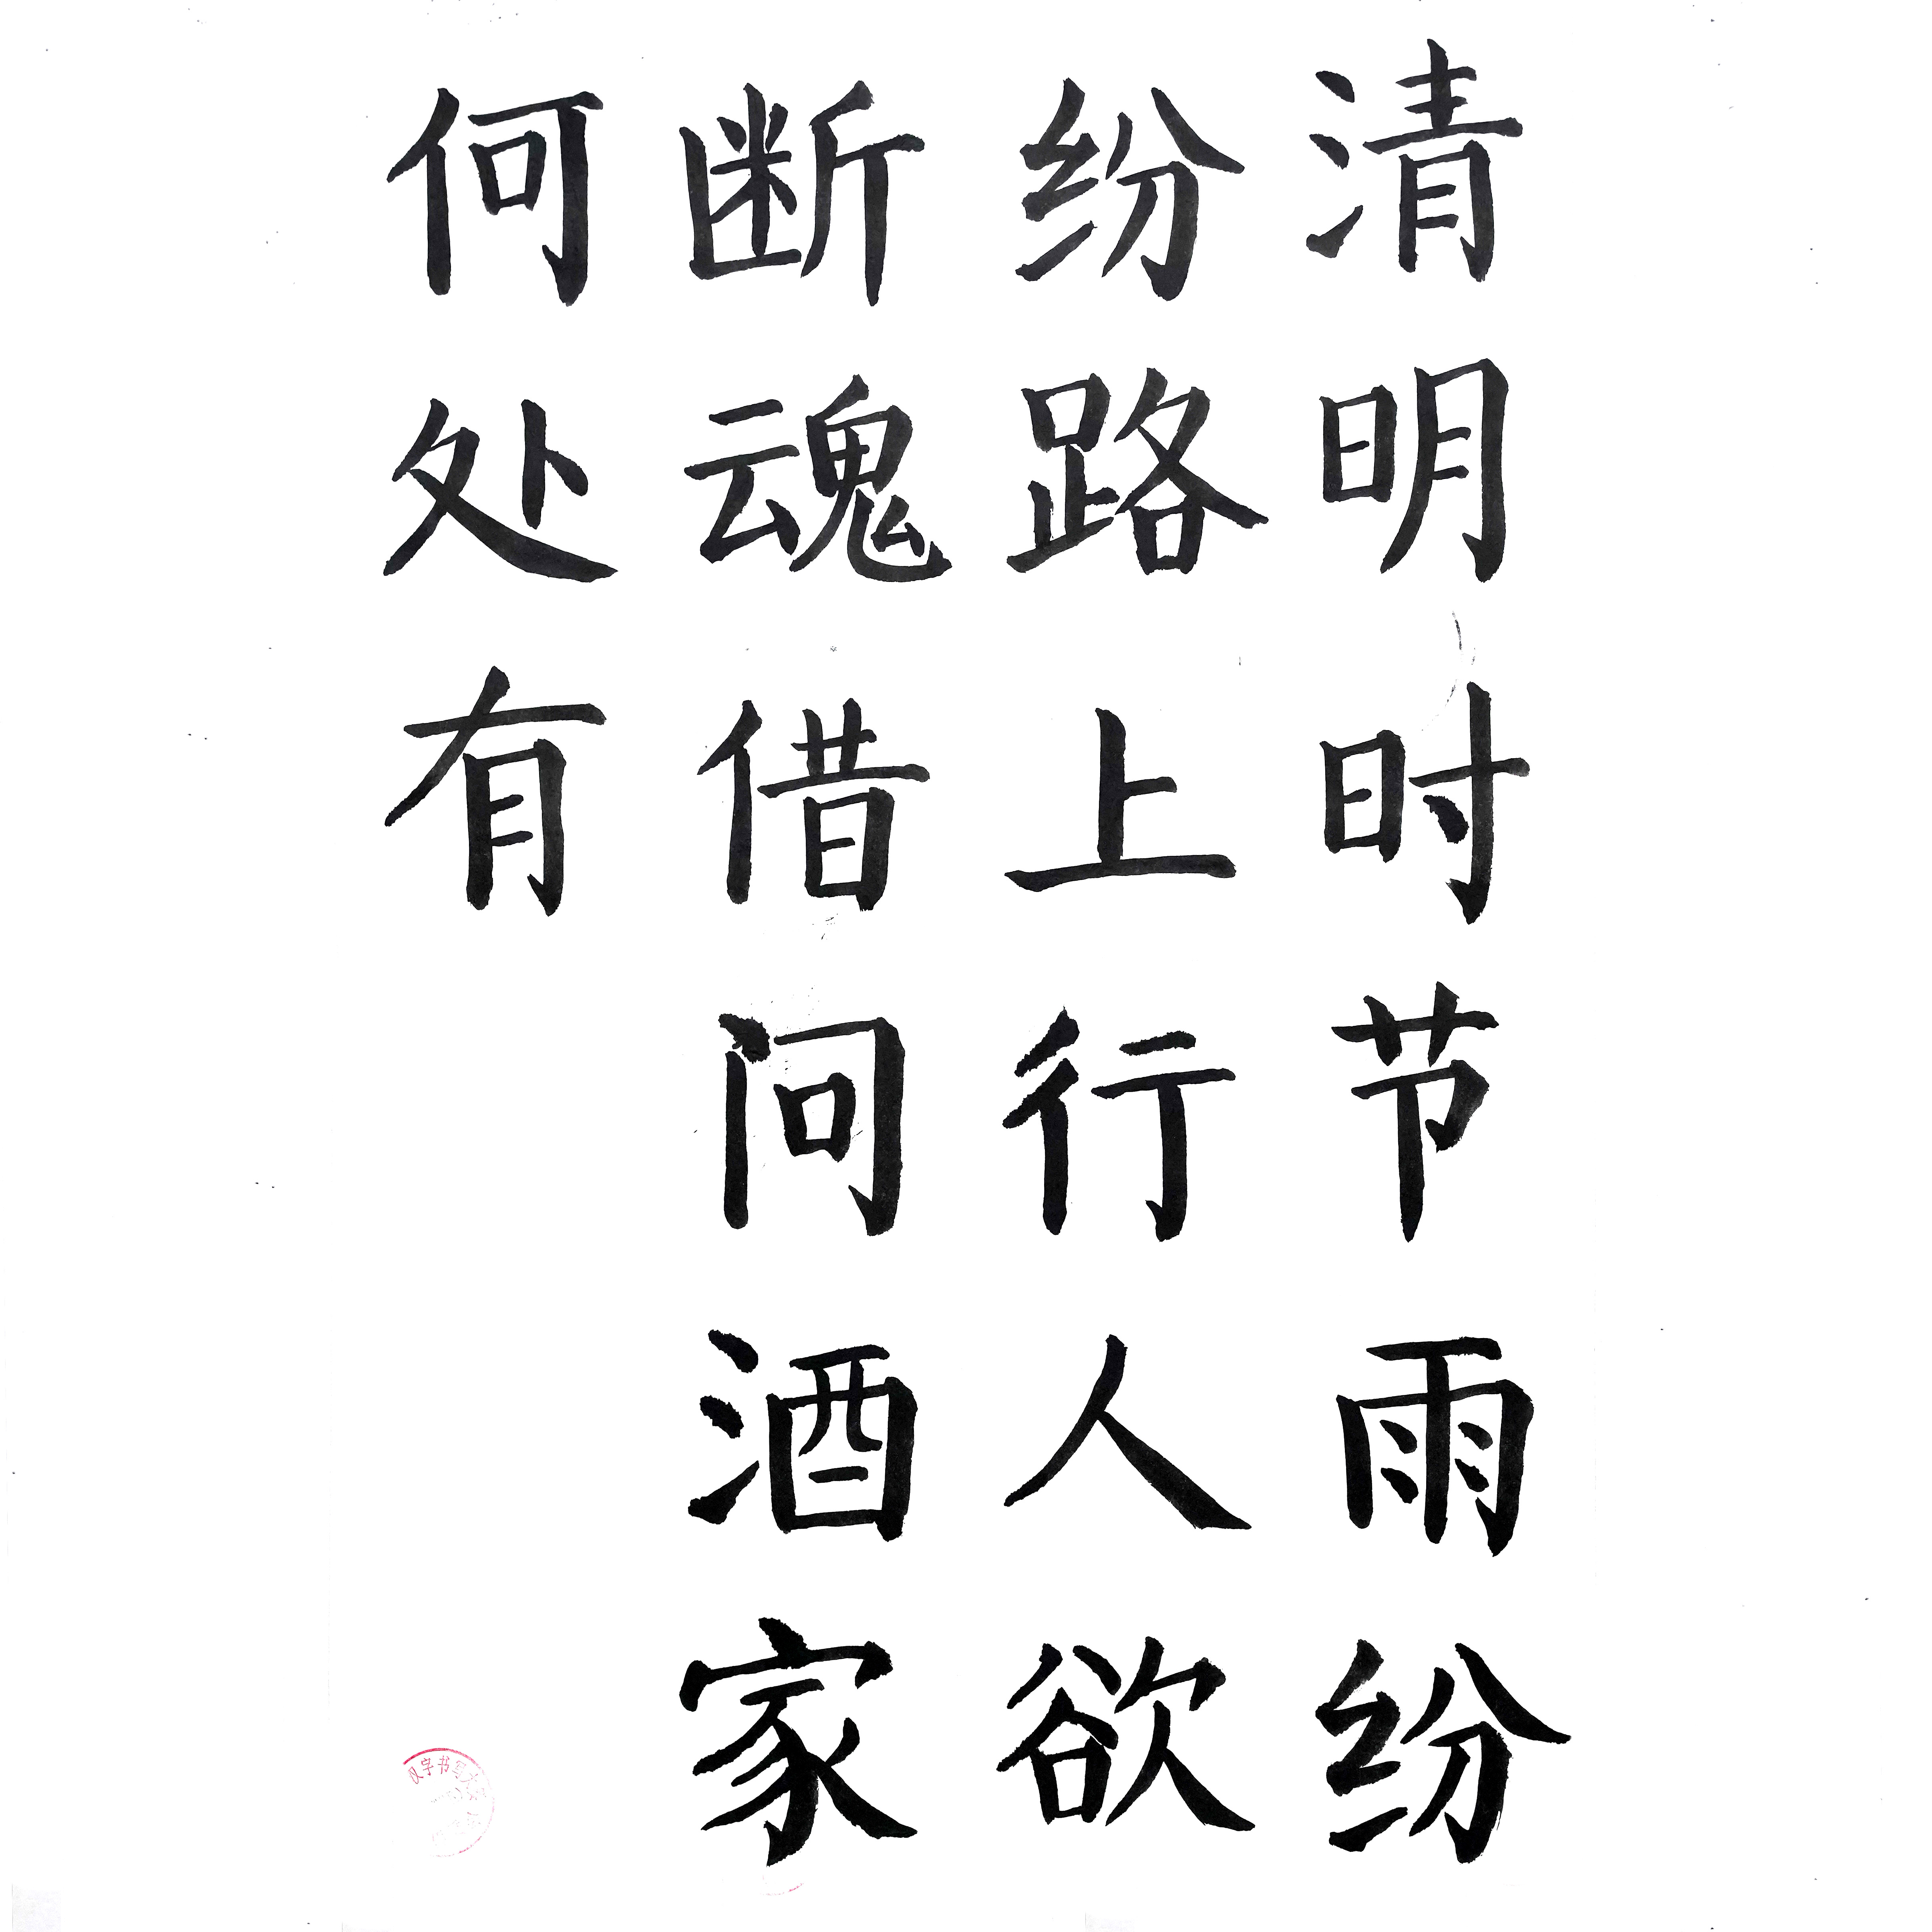 清明时节雨纷
纷路上行人欲
断魂借问酒家
何处有
汉字书写大